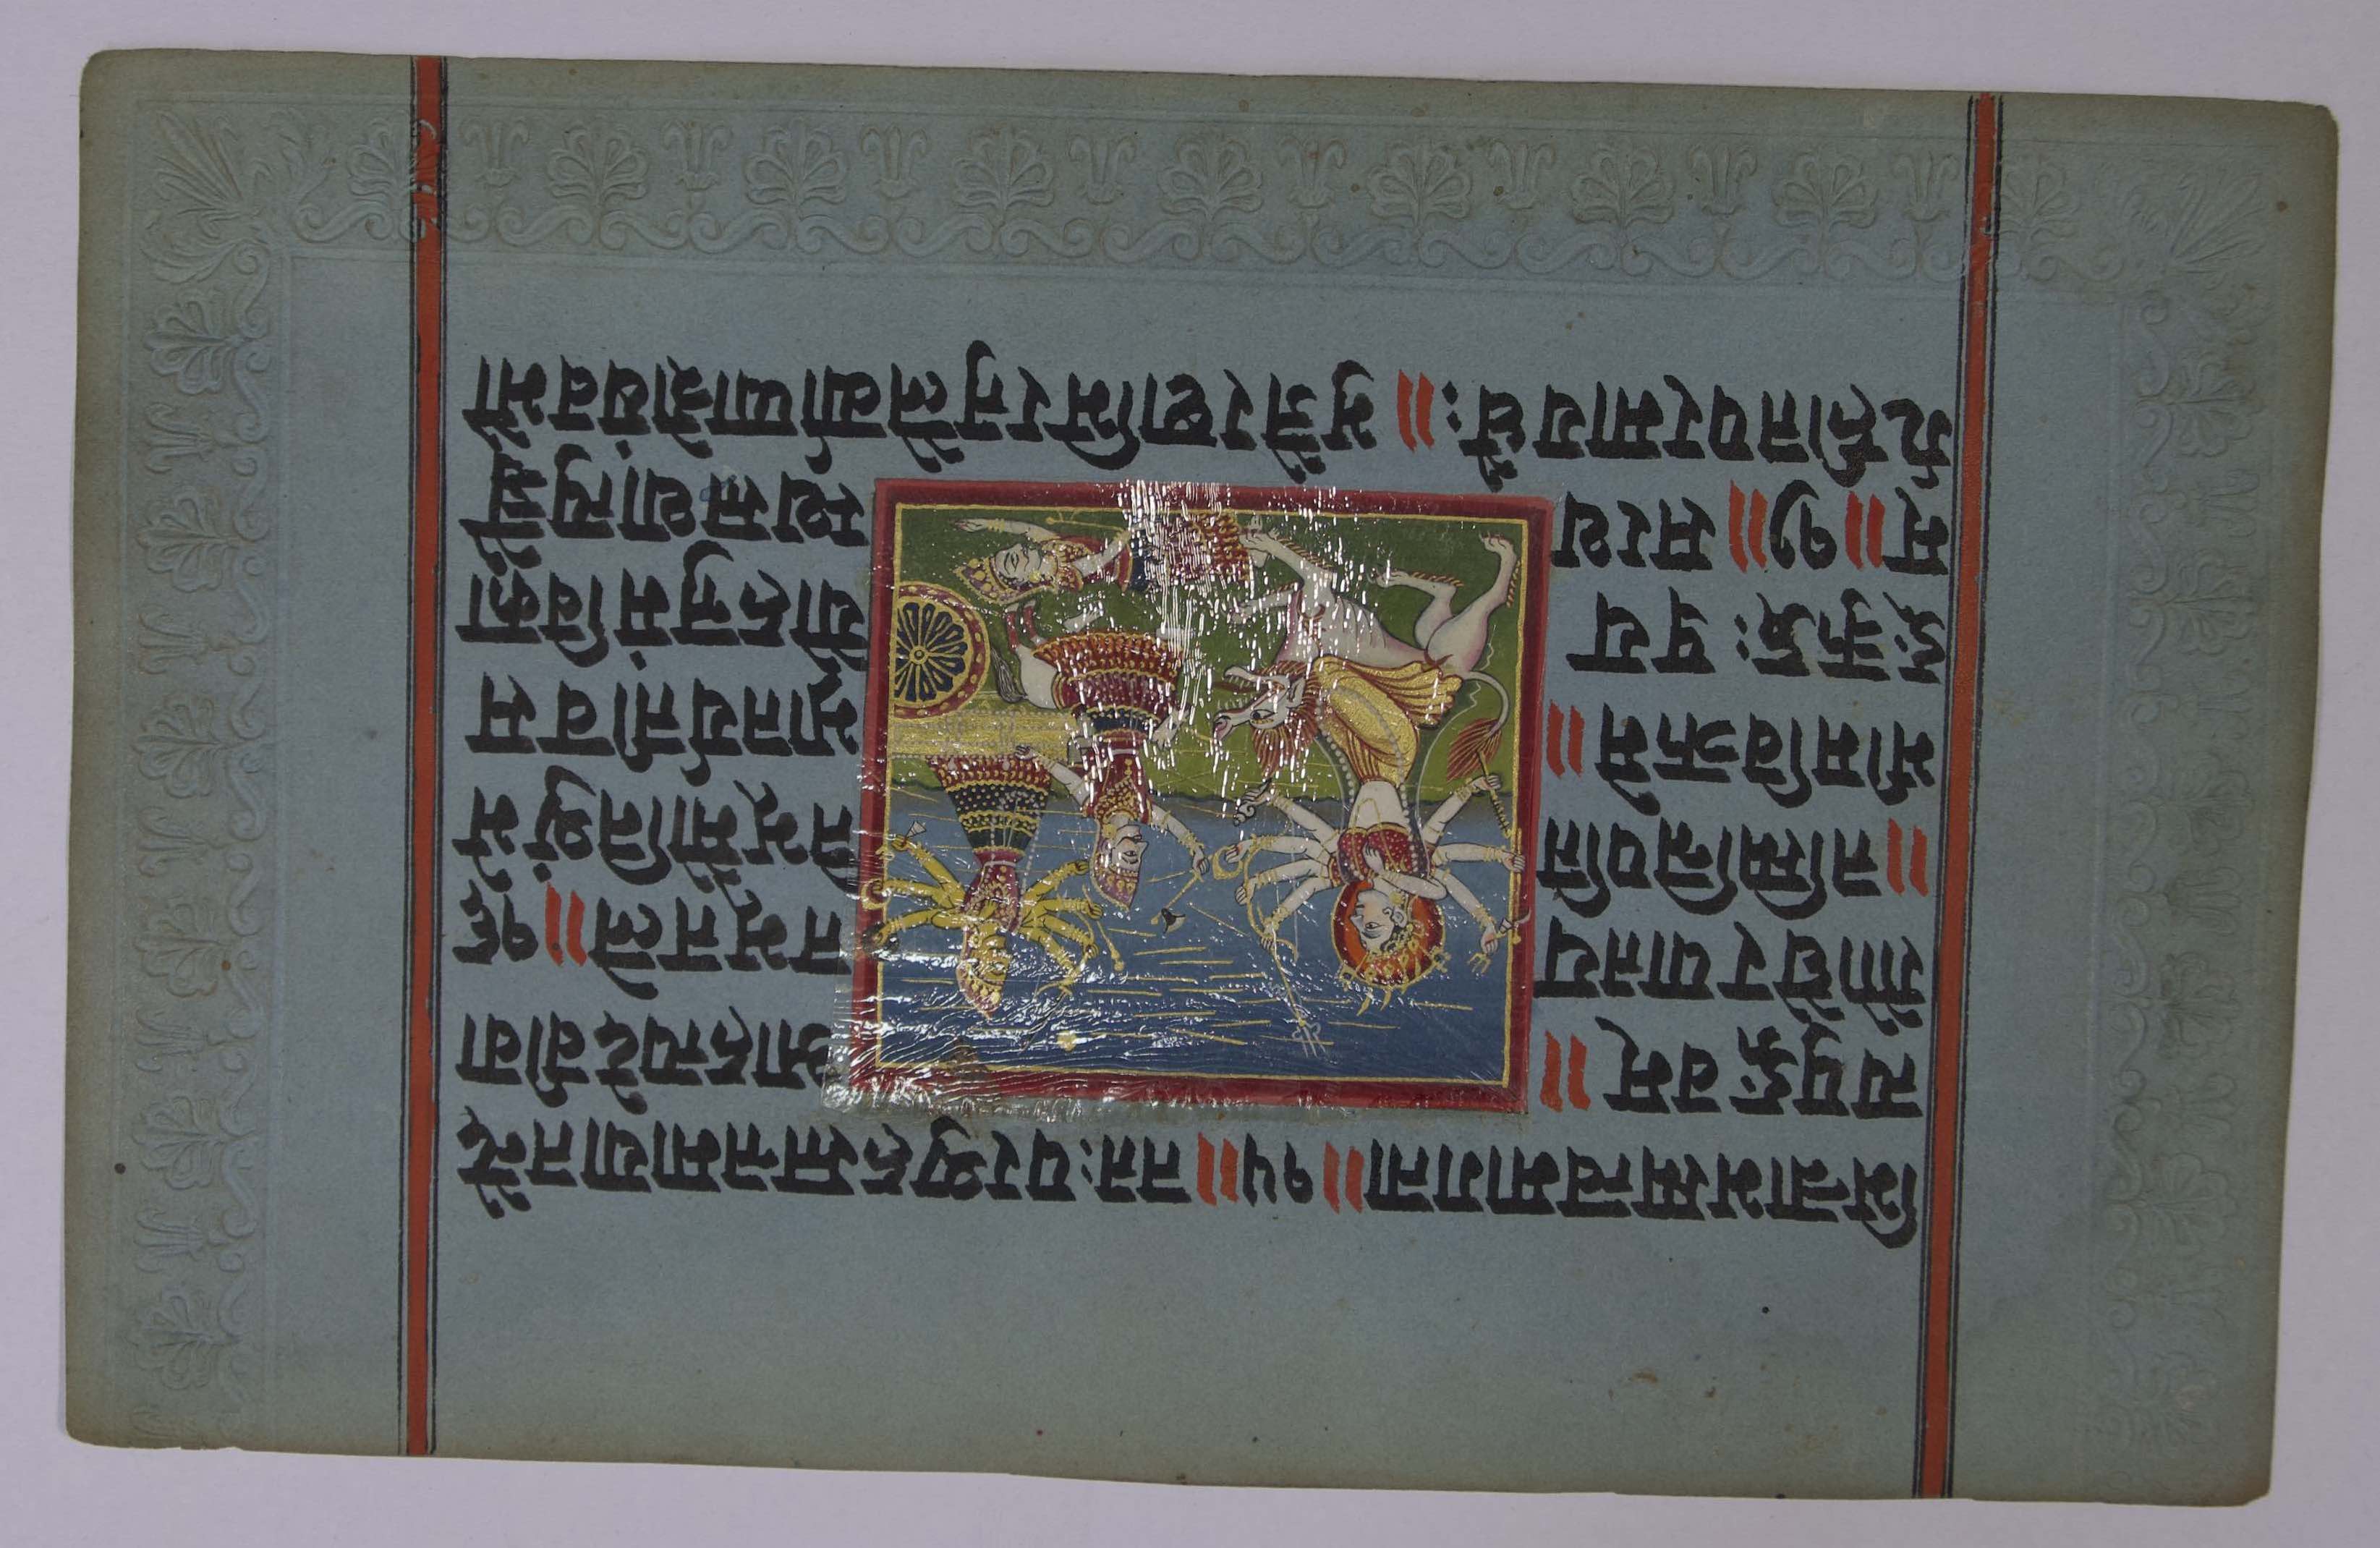 भिन्नाभस्मत्त्वमागता॥१५॥ततःपरश्युहस्तन्तमायातन्दै
त्यपुङ्गवम्॥ आहत्यदेवीवा
णौघैरपातय तभूतले॥१६
॥तस्मिन्निपति तेभूमौनिश्युंभे
भीमविक्रमे॥ भ्रातर्यतीवस
ङ्क्रुद्धः प्रय यौहन्तुमंविका
म्॥१७॥सरथ स्थस्तथात्युच्चै
र्गृहीतपरमायुधैः॥भुजैरष्टाभिरतुलैर्व्याप्याशेषंवभौ